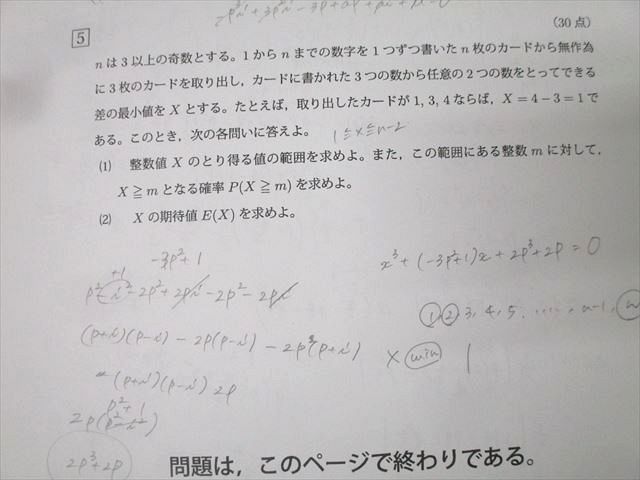 5
(30点)
nは3以上の奇数とする。1からnまでの数字を1つずつ書いたn枚のカードから無作為
に3枚のカードを取り出し,カードに書かれた3つの数から任意の2つの数をとってできる
差の最小値をXとする。たとえば,取り出したカードが1,3,4ならば,X=4-3=1で
ある。このとき,次の各問いに答えよ。 1≦x≦n-2
(1) 整数値Xのとり得る値の範囲を求めよ。また,この範囲にある整数mに対して,
X≧mとなる確率P(X≧m)を求めよ。
(2) Xの期待値E(X)を求めよ。
-3p²+1
x³+(-3p²+1)x+2p³+2p=0
+1
p²-i²-2p²+2pi-2p²-2pi
① ② 3, 4, 5, ……, n-1, n
(p+i)(p-i)-2p(p-i)-2p(p+i)
x min 1
-(p+i)(p-i)2p
p²+1
2p(p²-i²)
2p³+2p
問題は,このページで終わりである。